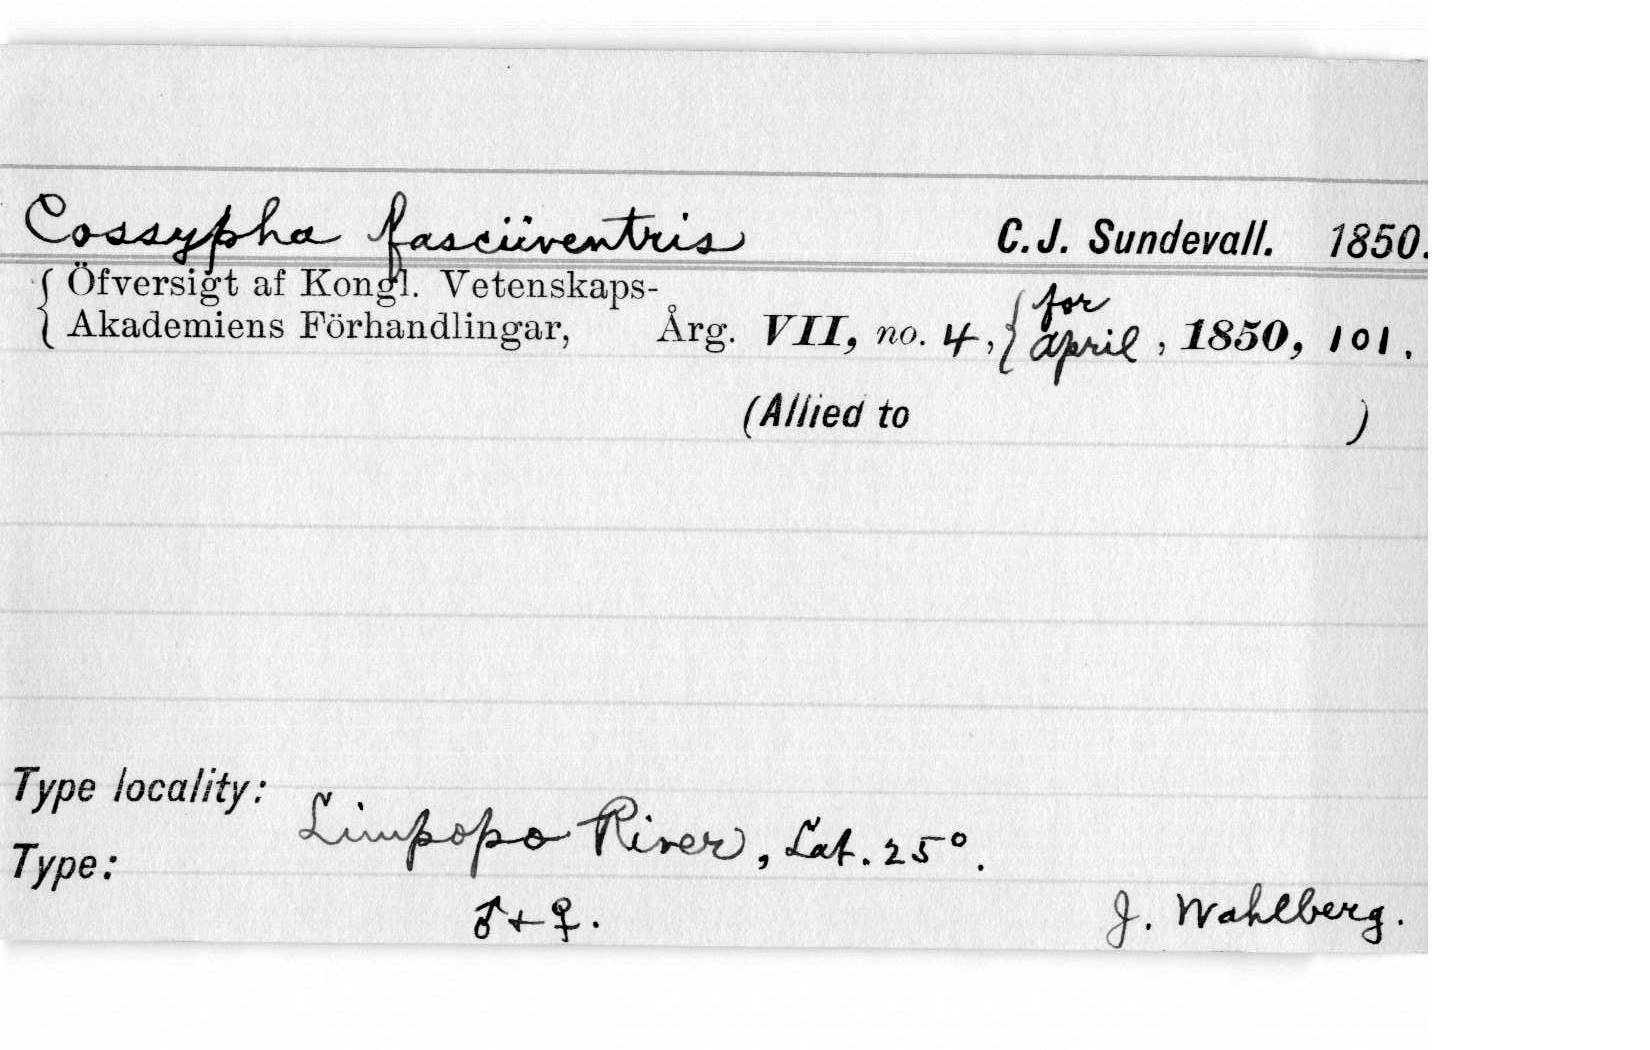 Cossypha fasciiventris C. J. Sundevall. 1850.
Öfversigt af Kongl. Vetenskaps-
Akademiens Förhandlingar, Årg. VII, no. 4, for april, 1850, 101.
(Allied to )
Type locality: Limpopo River, Lat. 25°.
Type: ♂ + ♀. J. Wahlberg.